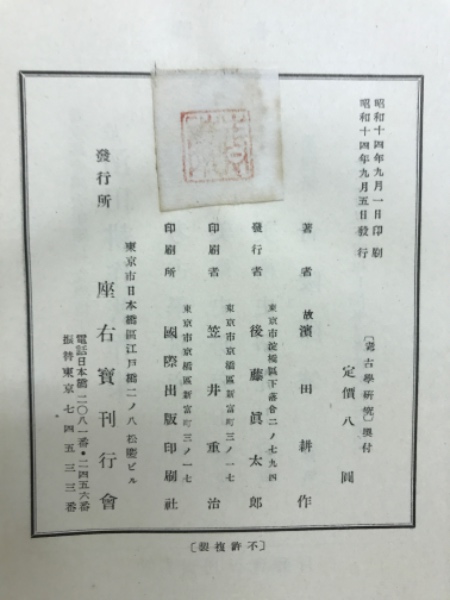 昭和十四年九月一日印刷
昭和十四年九月五日發行
〔考古學硏究〕奧付
定價八圓
著者 故濱田耕作
東京市淀橋區下落合二ノ七九四
發行者 後藤眞太郎
東京市京橋區新富町三ノ一七
印刷者 笠井重治
東京市京橋區新富町三ノ一七
印刷所 國際出版印刷社
東京市日本橋區江戸橋二ノ八松慶ビル
發行所 座右寶刊行會
電話日本橋二〇八一番・二四五六番
振替東京七四五三三番
〔不許複製〕